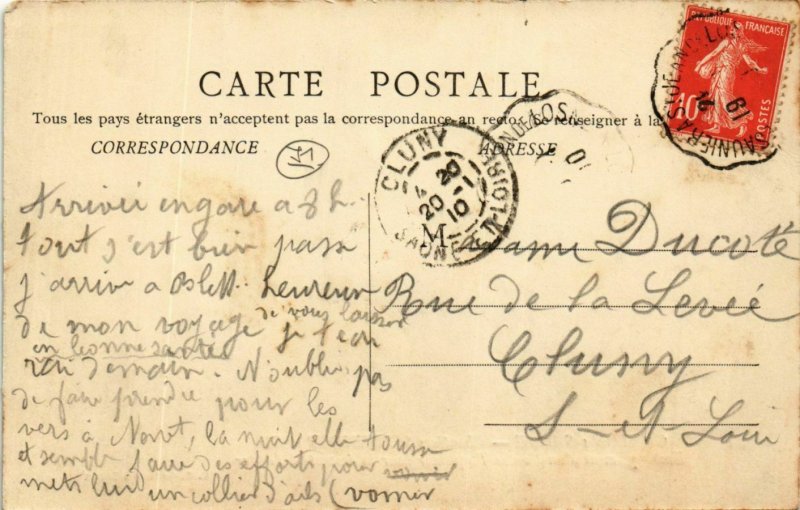 CARTE POSTALE
Tous les pays étrangers n'acceptent pas la correspondance au recto. Se renseigner à la
CORRESPONDANCE
ADRESSE
71
REPUBLIQUE FRANÇAISE
10
POSTES
CLUNY
20
10
SAÔNE-ET-LOIRE
M
Arrivée en gare a 8 h.
tout s'est bien passé
j'arrive a heureux
de mon voyage de vous laisser
en bonne santé je t'ecri
rai demain. N'oublie pas
de faire prendre pour les
vers à la nuit elle tousse
et semble faire des efforts pour vomir
mets lui un collier d'ails (vomir
Madame Ducoté
Rue de la Levée
Cluny
S-et-Loire